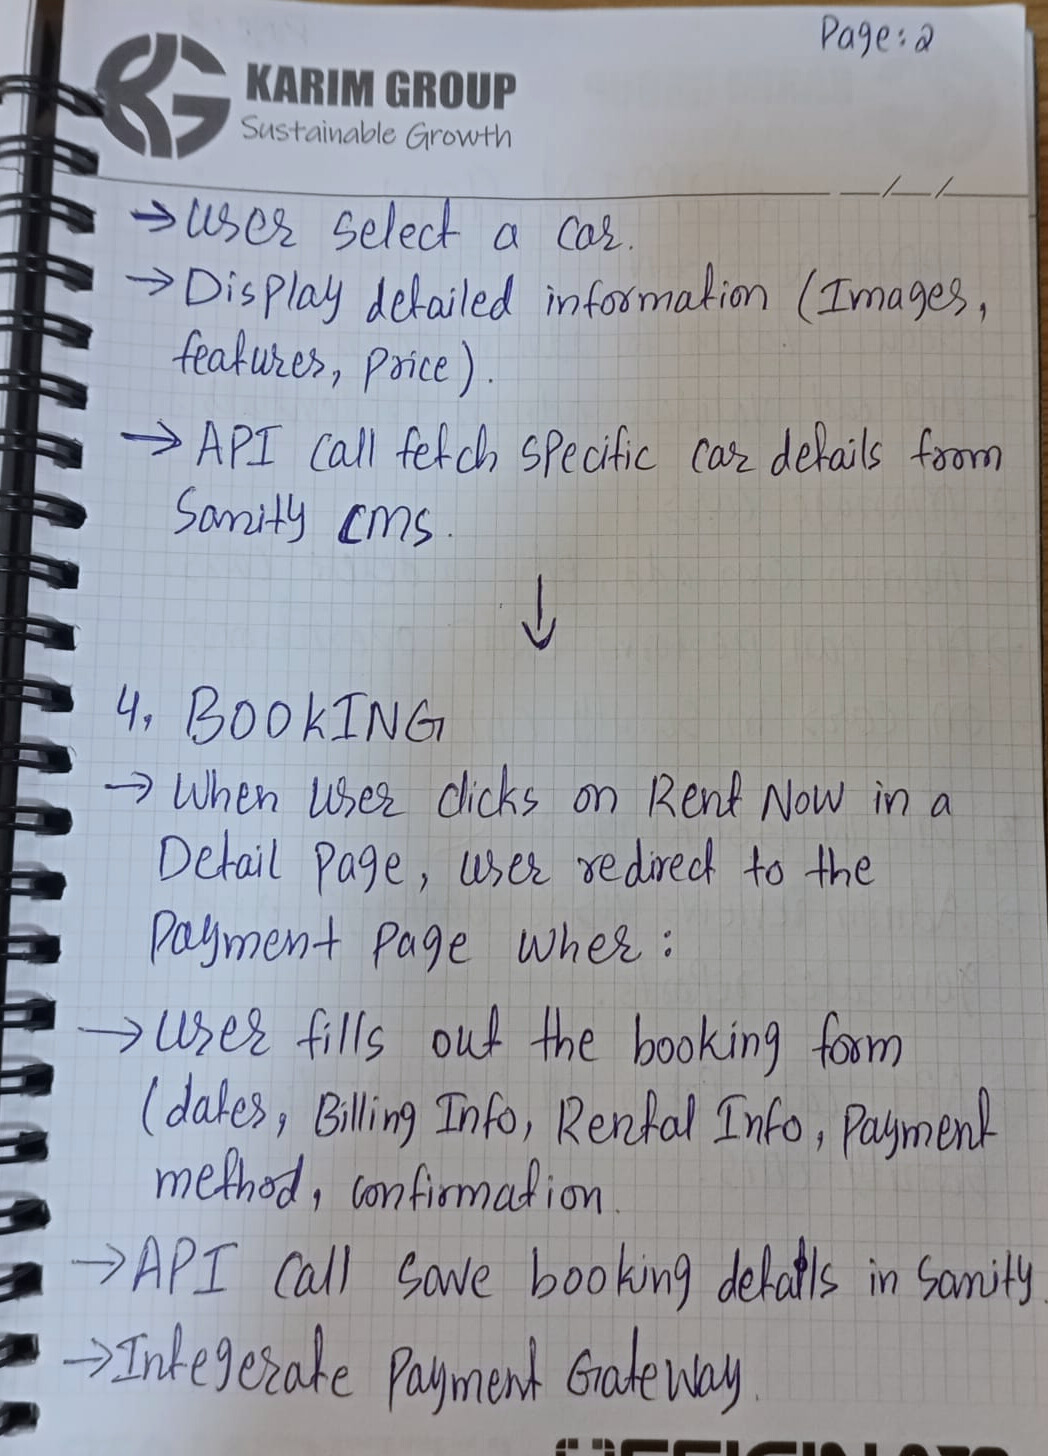 Page:2
KARIM GROUP
Sustainable Growth
→ User select a car.
→ Display detailed information (Images,
features, Price).
→ API Call fetch specific car details from
Sanity CMS.
↓
4. BOOKING
→ When User clicks on Rent Now in a
Detail Page, user redirect to the
Payment Page wher :
→ User fills out the booking form
(dates, Billing Info, Rental Info, Payment
method, confirmation.
→ API Call Save booking details in Sanity.
→ Integerate Payment Gateway.